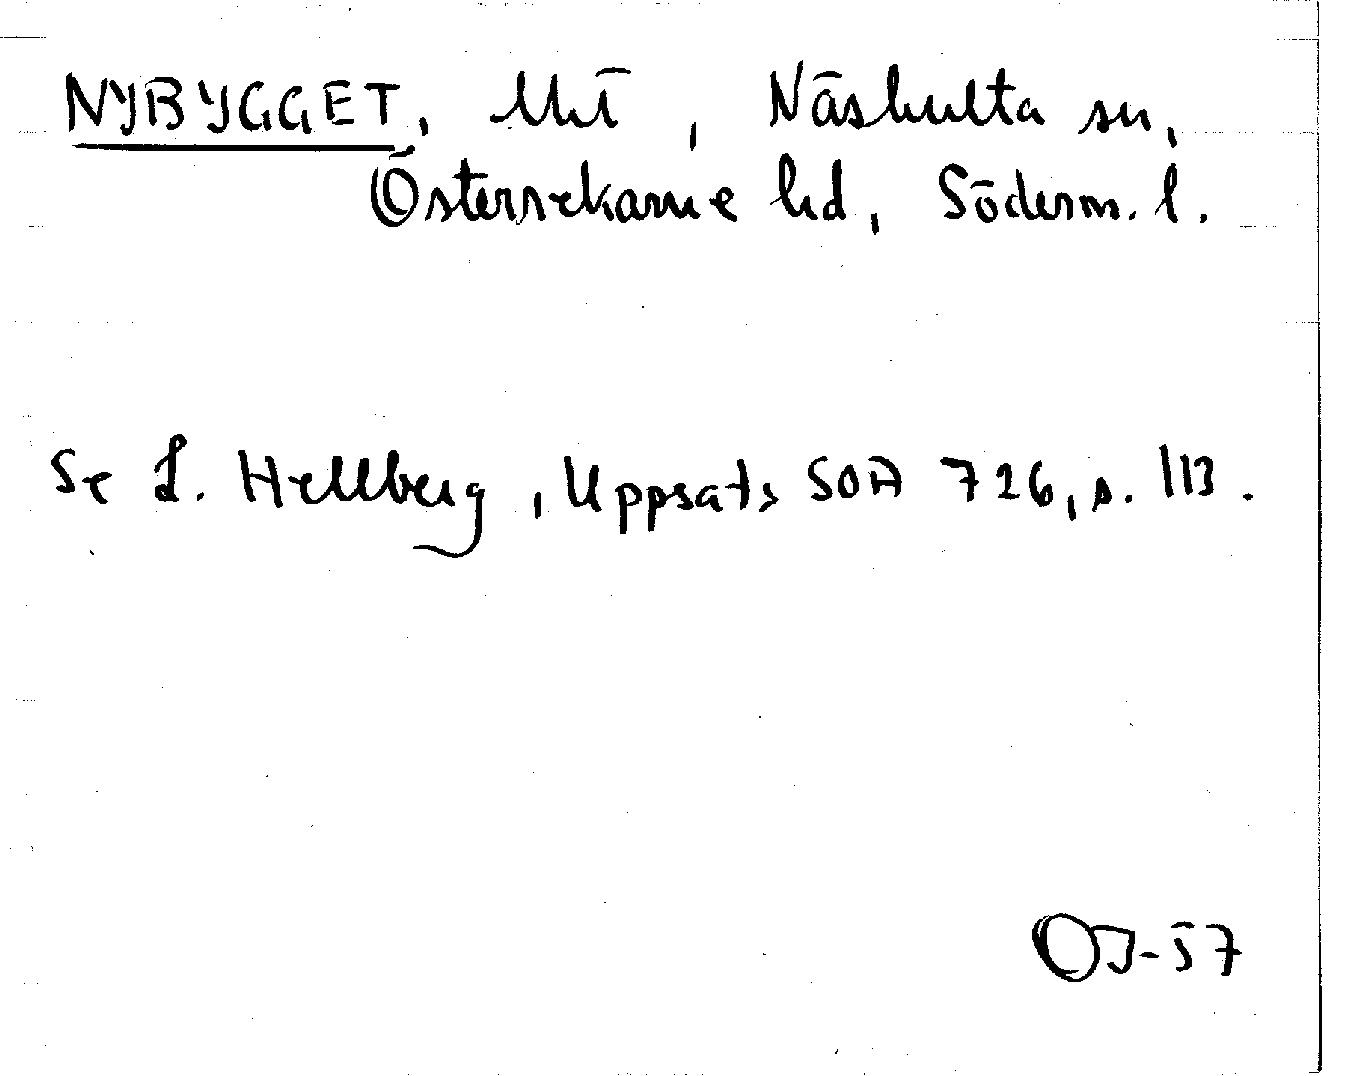 NYBYGGET, Näshulta sn,
Österrekarne hd, Söderm. l.
Se L. Hellberg, Uppsats SOA 726, s. 113.
OJ-57